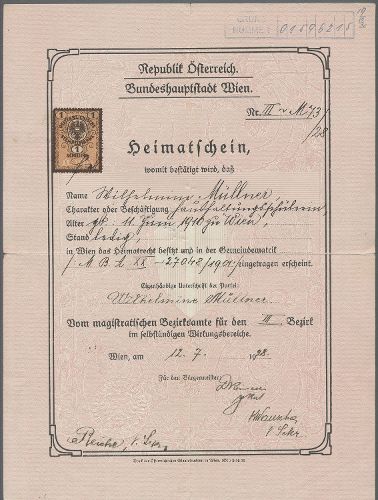 Republik Österreich.
Bundeshauptstadt Wien.
Nr. III M73/28
1 1
SCHILLING
Heimatschein,
womit bestätigt wird, daß
Name Wilhelmine Müllner
Charakter oder Beschäftigung Haushaltungsschülerin
Alter geb. 11. Juni 1910 zu Wien,
Stand ledig,
in Wien das Heimatrecht besitzt und in der Gemeindematrik
eingetragen erscheint.
Eigenhändige Unterschrift der Partei:
Wilhelmine Müllner
Vom magistratischen Bezirksamte für den III. Bezirk
im selbständigen Wirkungsbereiche.
Wien, am 12. 7. 1928
Für den Bürgermeister: